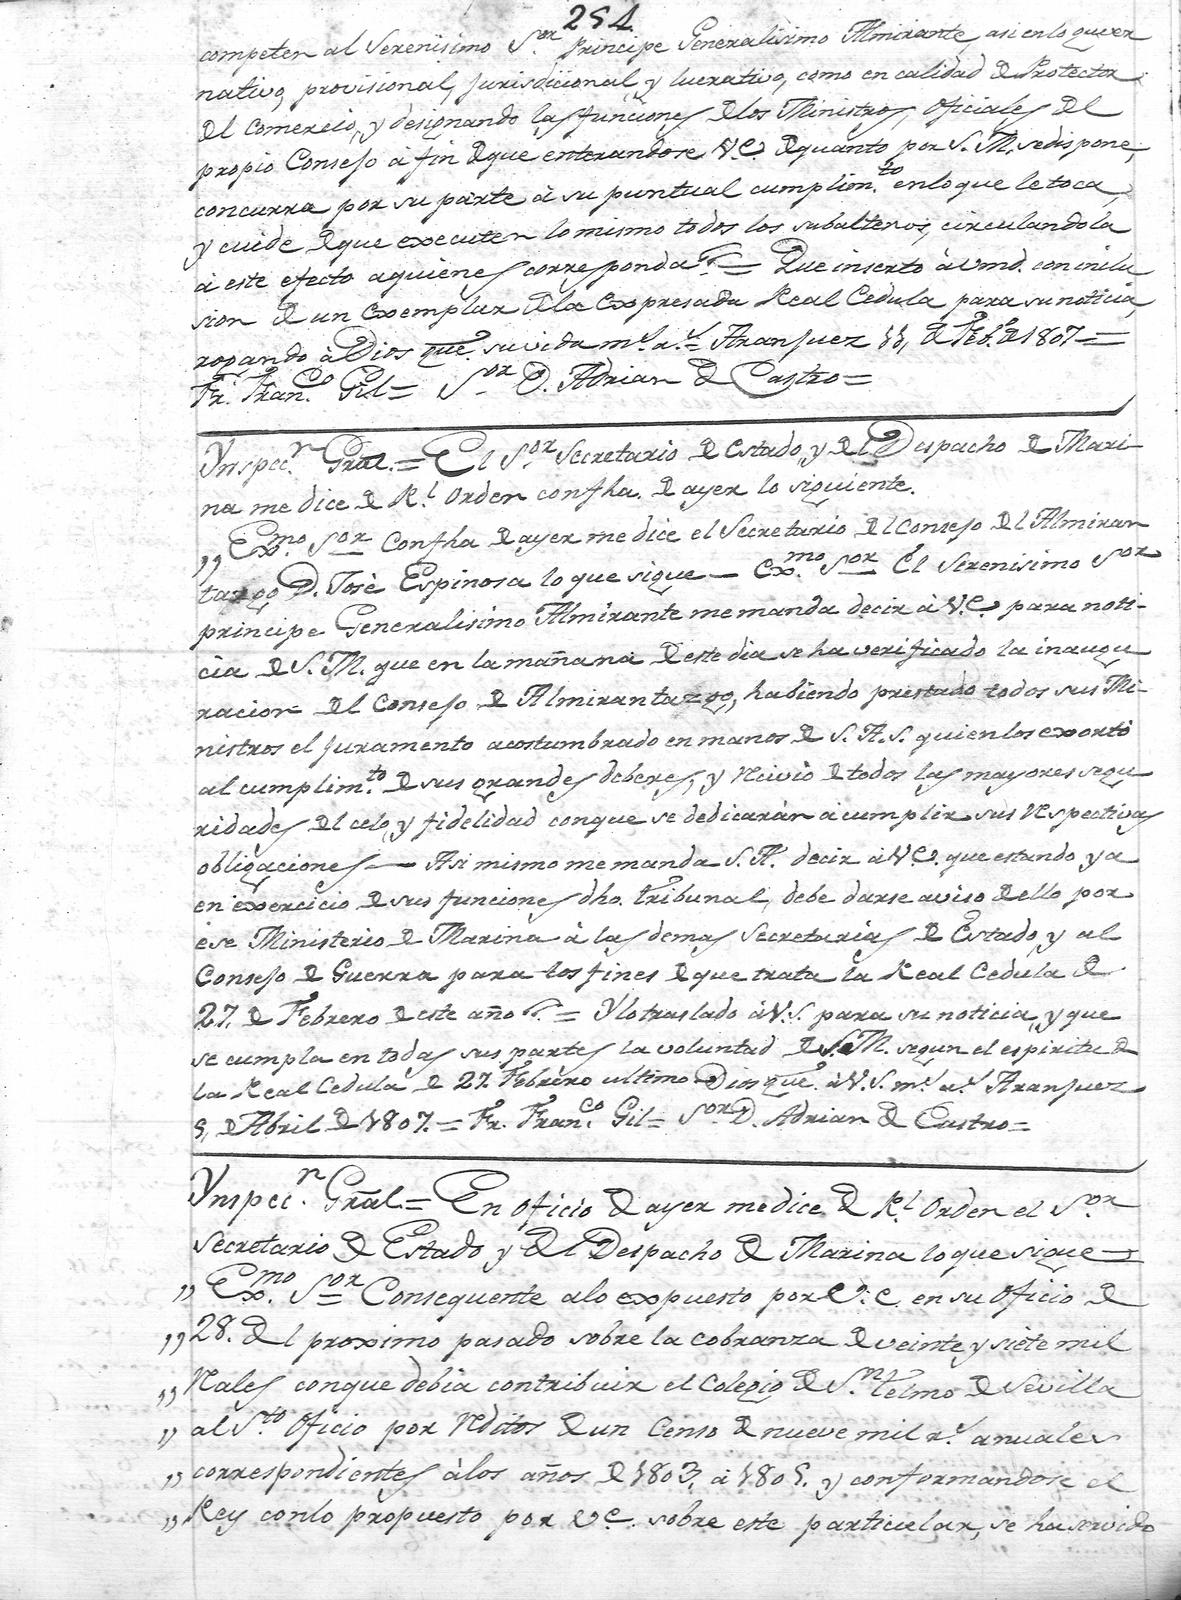 254
competen al Serenisimo S.or Principe Generalisimo Almirante, asi en lo guver
nativo, provisional, Jurisdicional, y lucrativo, como en calidad de Protector
del Comercio, y designando las funciones de los Ministros, Oficiales del
propio Consejo à fin de que enterandose V.E. de quanto por S. M. se dispone,
concurra por su parte à su puntual cumplim.to en lo que le toca,
y cuide de que executen lo mismo todos los subalternos, circulandola
à este efecto a quienes corresponda = Que inserto à Vmd. con inclu
sion de un exemplar de la expresada Real Cedula para su noticia,
rogando à Dios que. su vida m.s a.s Aranjuez 11, de Feb.o de 1807 =
Fr. Fran.co Gil = S.or D. Adrian de Castro =
Ynspec.n Gral. = El S.or Secretario de Estado, y del Despacho de Mari-
na me dice de R.l Orden con fha. de ayer lo siguiente.
,, Ex.mo S.or Con fha de ayer me dice el Secretario del Consejo del Almiran
tazgo D. Josè Espinosa lo que sigue — Ex.mo S.or El Serenisimo S.or
principe Generalisimo Almirante me manda decir à V.E. para noti-
cia de S. M. que en la mañana de este dia se ha verificado la inaugu
racion del Consejo de Almirantazgo, habiendo prestado todos sus Mi-
nistros el Juramento acostumbrado en manos de S. A. S. quien los exortò
al cumplim.to de sus grandes deberes, y Recivio de todos las mayores segu
ridades del celo, y fidelidad con que se dedicaràn a cumplir sus Respectivas
obligaciones — Asi mismo me manda S. A. decir à V.E. que estando ya
en exercicio de sus funciones dho. tribunal, debe darse aviso de ello por
ese Ministerio de Marina à las demas Secretarias de Estado, y al
Consejo de Guerra para los fines de que trata la Real Cedula de
27. de Febrero de este año = Y lo traslado à V.S. para su noticia, y que
se cumpla en todas sus partes la voluntad de S. M. segun el espiritu de
la Real Cedula de 27. Febrero ultimo Dios que. à V. S. m.s a.s Aranjuez
5, de Abril de 1807. = Fr. Fran.co Gil = S.or D. Adrian de Castro =
Ynspec.n Gral = En oficio de ayer me dice de R.l Orden el S.or
Secretario de Estado y del Despacho de Marina lo que sigue —
,, Ex.mo S.or Consequente a lo expuesto por V.E. en su Oficio de
,, 28. del proximo pasado sobre la cobranza de veinte, y siete mil
,, Rales con que debia contribuir el Colegio de S.n Telmo de Sevilla
,, al S.to Oficio por Reditos de un Censo de nueve mil r.s anuales
,, correspondientes à los años de 1803, à 1805. y conformandose el
,, Rey con lo propuesto por V.E. sobre este particular, se ha servido